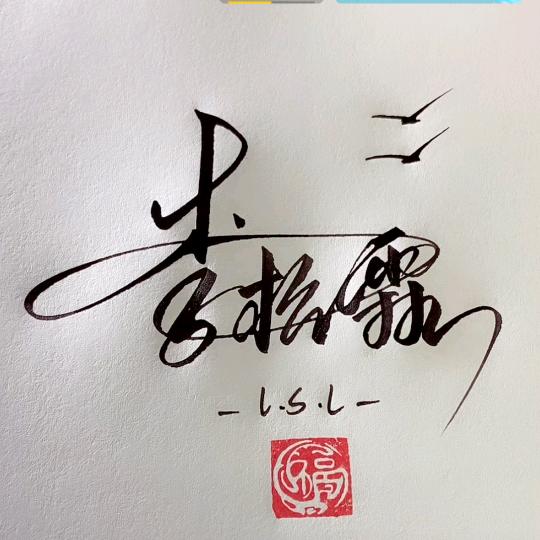 李松霖
- L.S.L -
福